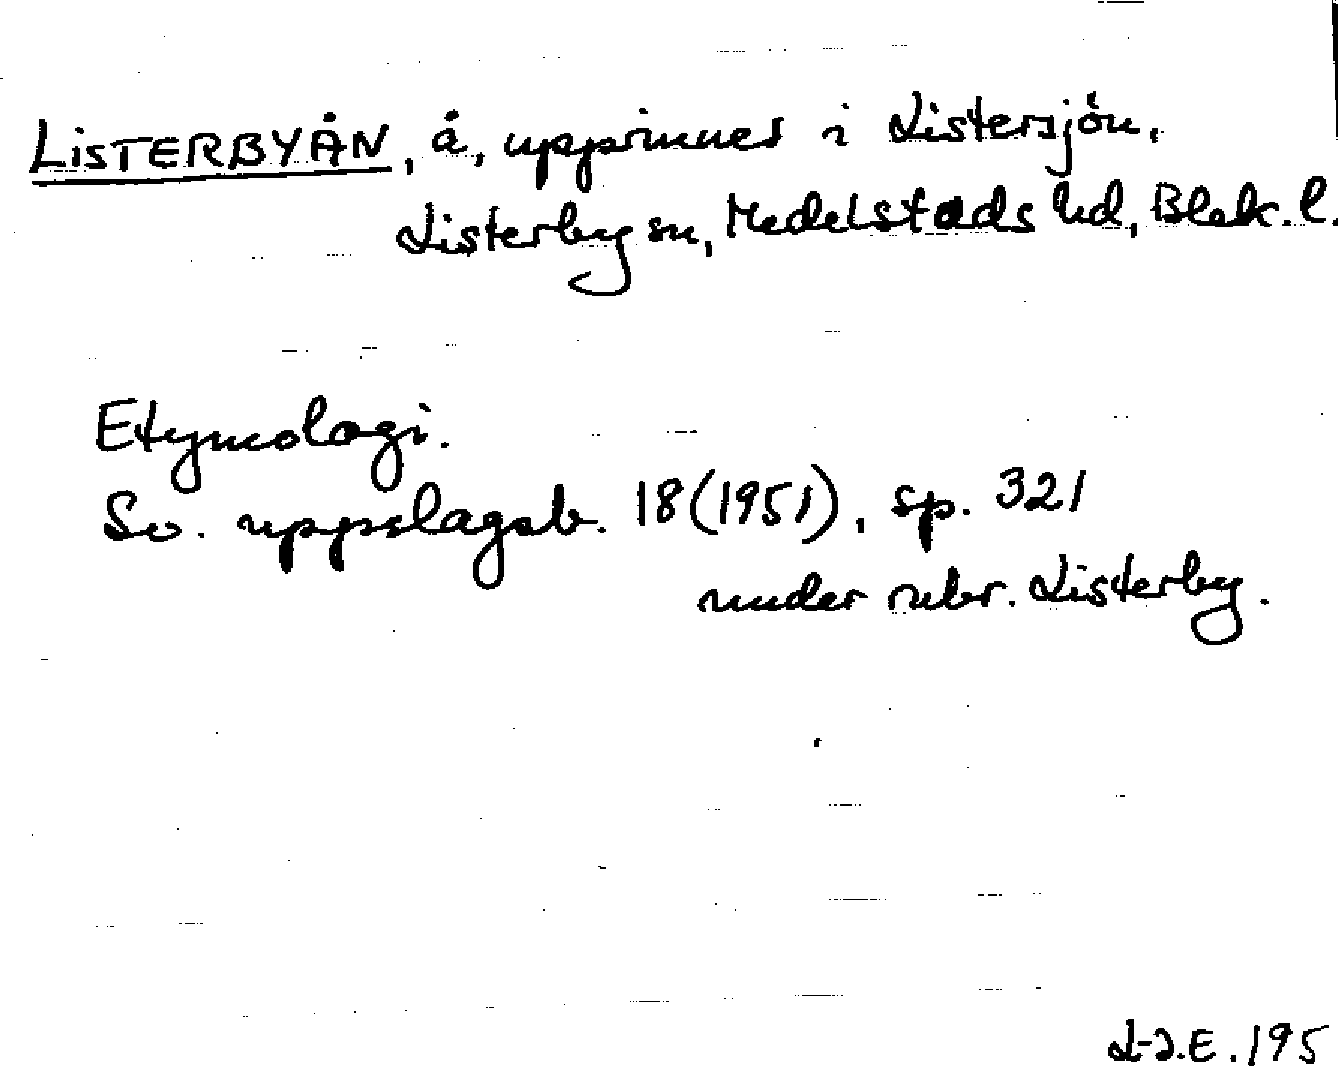 LISTERBYÅN, å, upprinner i Listersjön.
Listerby sn, Medelstads hd, Blek. l.
Etymologi.
Sv. uppslagsb. 18 (1951), sp. 321
under rubr. Listerby.
L-J.E. 195